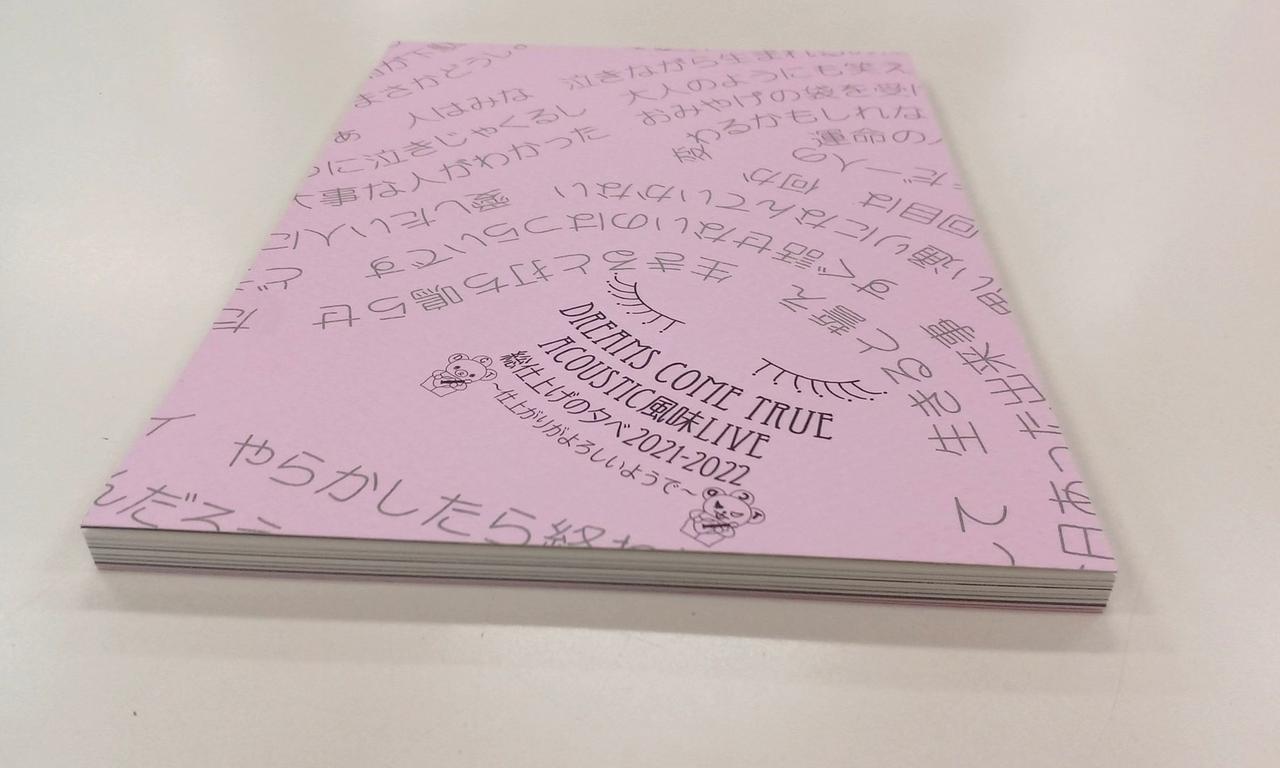 まさかどうしの
泣きながら生まれ
人はみな
大人のようにも笑え
おみやげの袋を受け
あ
うに泣きじゃくるし
わるかもしれな
運命の人
大事な人がわかった
愛
の人一だ
何か
回目は
愛したい人に
思い通りになんていかない
すぐ話せないのはつらいです
生きると打ち鳴らせ
生きると誓え
日あった出来事
DREAMS COME TRUE
ACOUSTIC風味LIVE
総仕上げの夕べ2021-2022
～仕上がりがよろしいようで～
やらかしたら終わ
んだろう